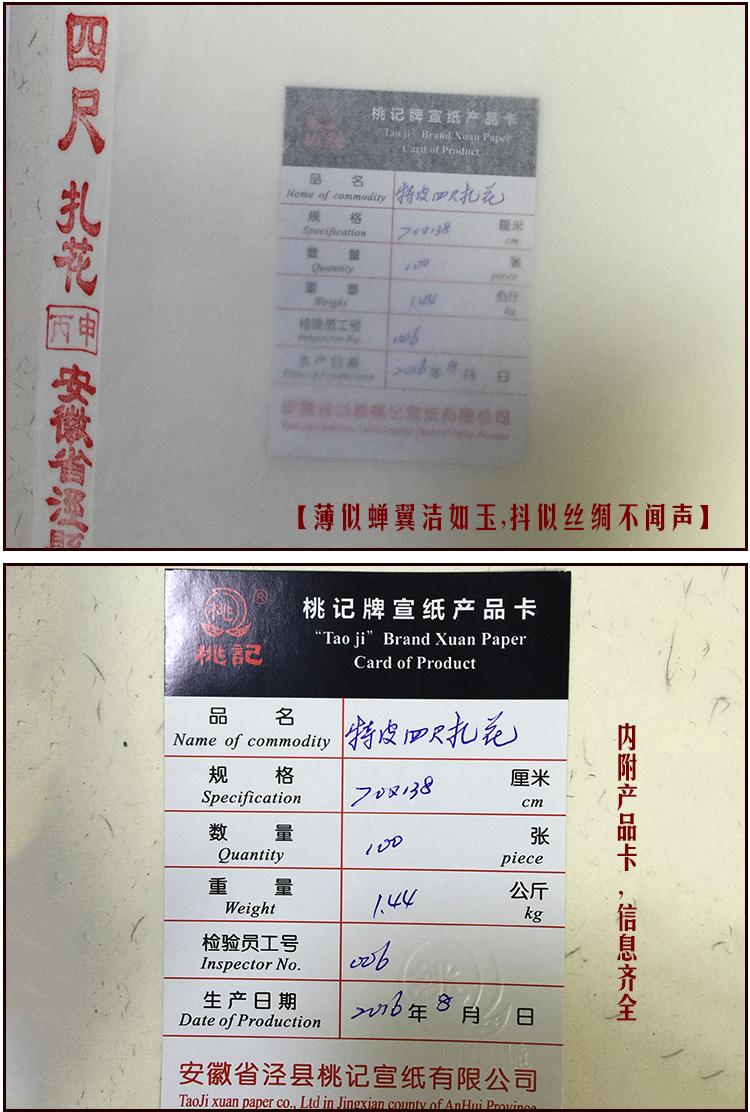 四尺 扎花
丙申
安徽省泾县
桃记牌宣纸产品卡
"Tao ji" Brand Xuan Paper
Card of Product
品 名 特皮四尺扎花
Name of commodity
规 格 70×138 厘米
Specification cm
数 量 100 张
Quantity piece
重 量 1.44 公斤
Weight kg
检验员工号 006
Inspector No.
生产日期 2016年8月 日
Date of Production
安徽省泾县桃记宣纸有限公司
【薄似蝉翼洁如玉,抖似丝绸不闻声】
桃
®
桃記
桃记牌宣纸产品卡
"Tao ji" Brand Xuan Paper
Card of Product
品 名 特皮四尺扎花
Name of commodity
规 格 70×138 厘米
Specification cm
数 量 100 张
Quantity piece
重 量 1.44 公斤
Weight kg
检验员工号 006
Inspector No.
生产日期 2016年8月 日
Date of Production
安徽省泾县桃记宣纸有限公司
TaoJi xuan paper co., Ltd in Jingxian county of AnHui Province
内附产品卡,信息齐全